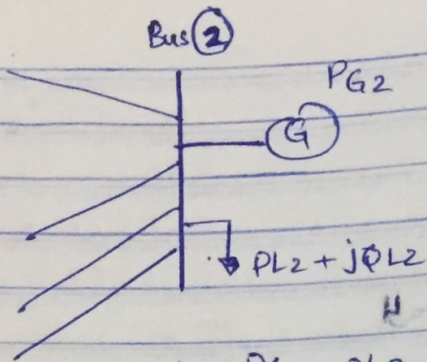 Bus ②
PG2
G
PL2 + jQL2